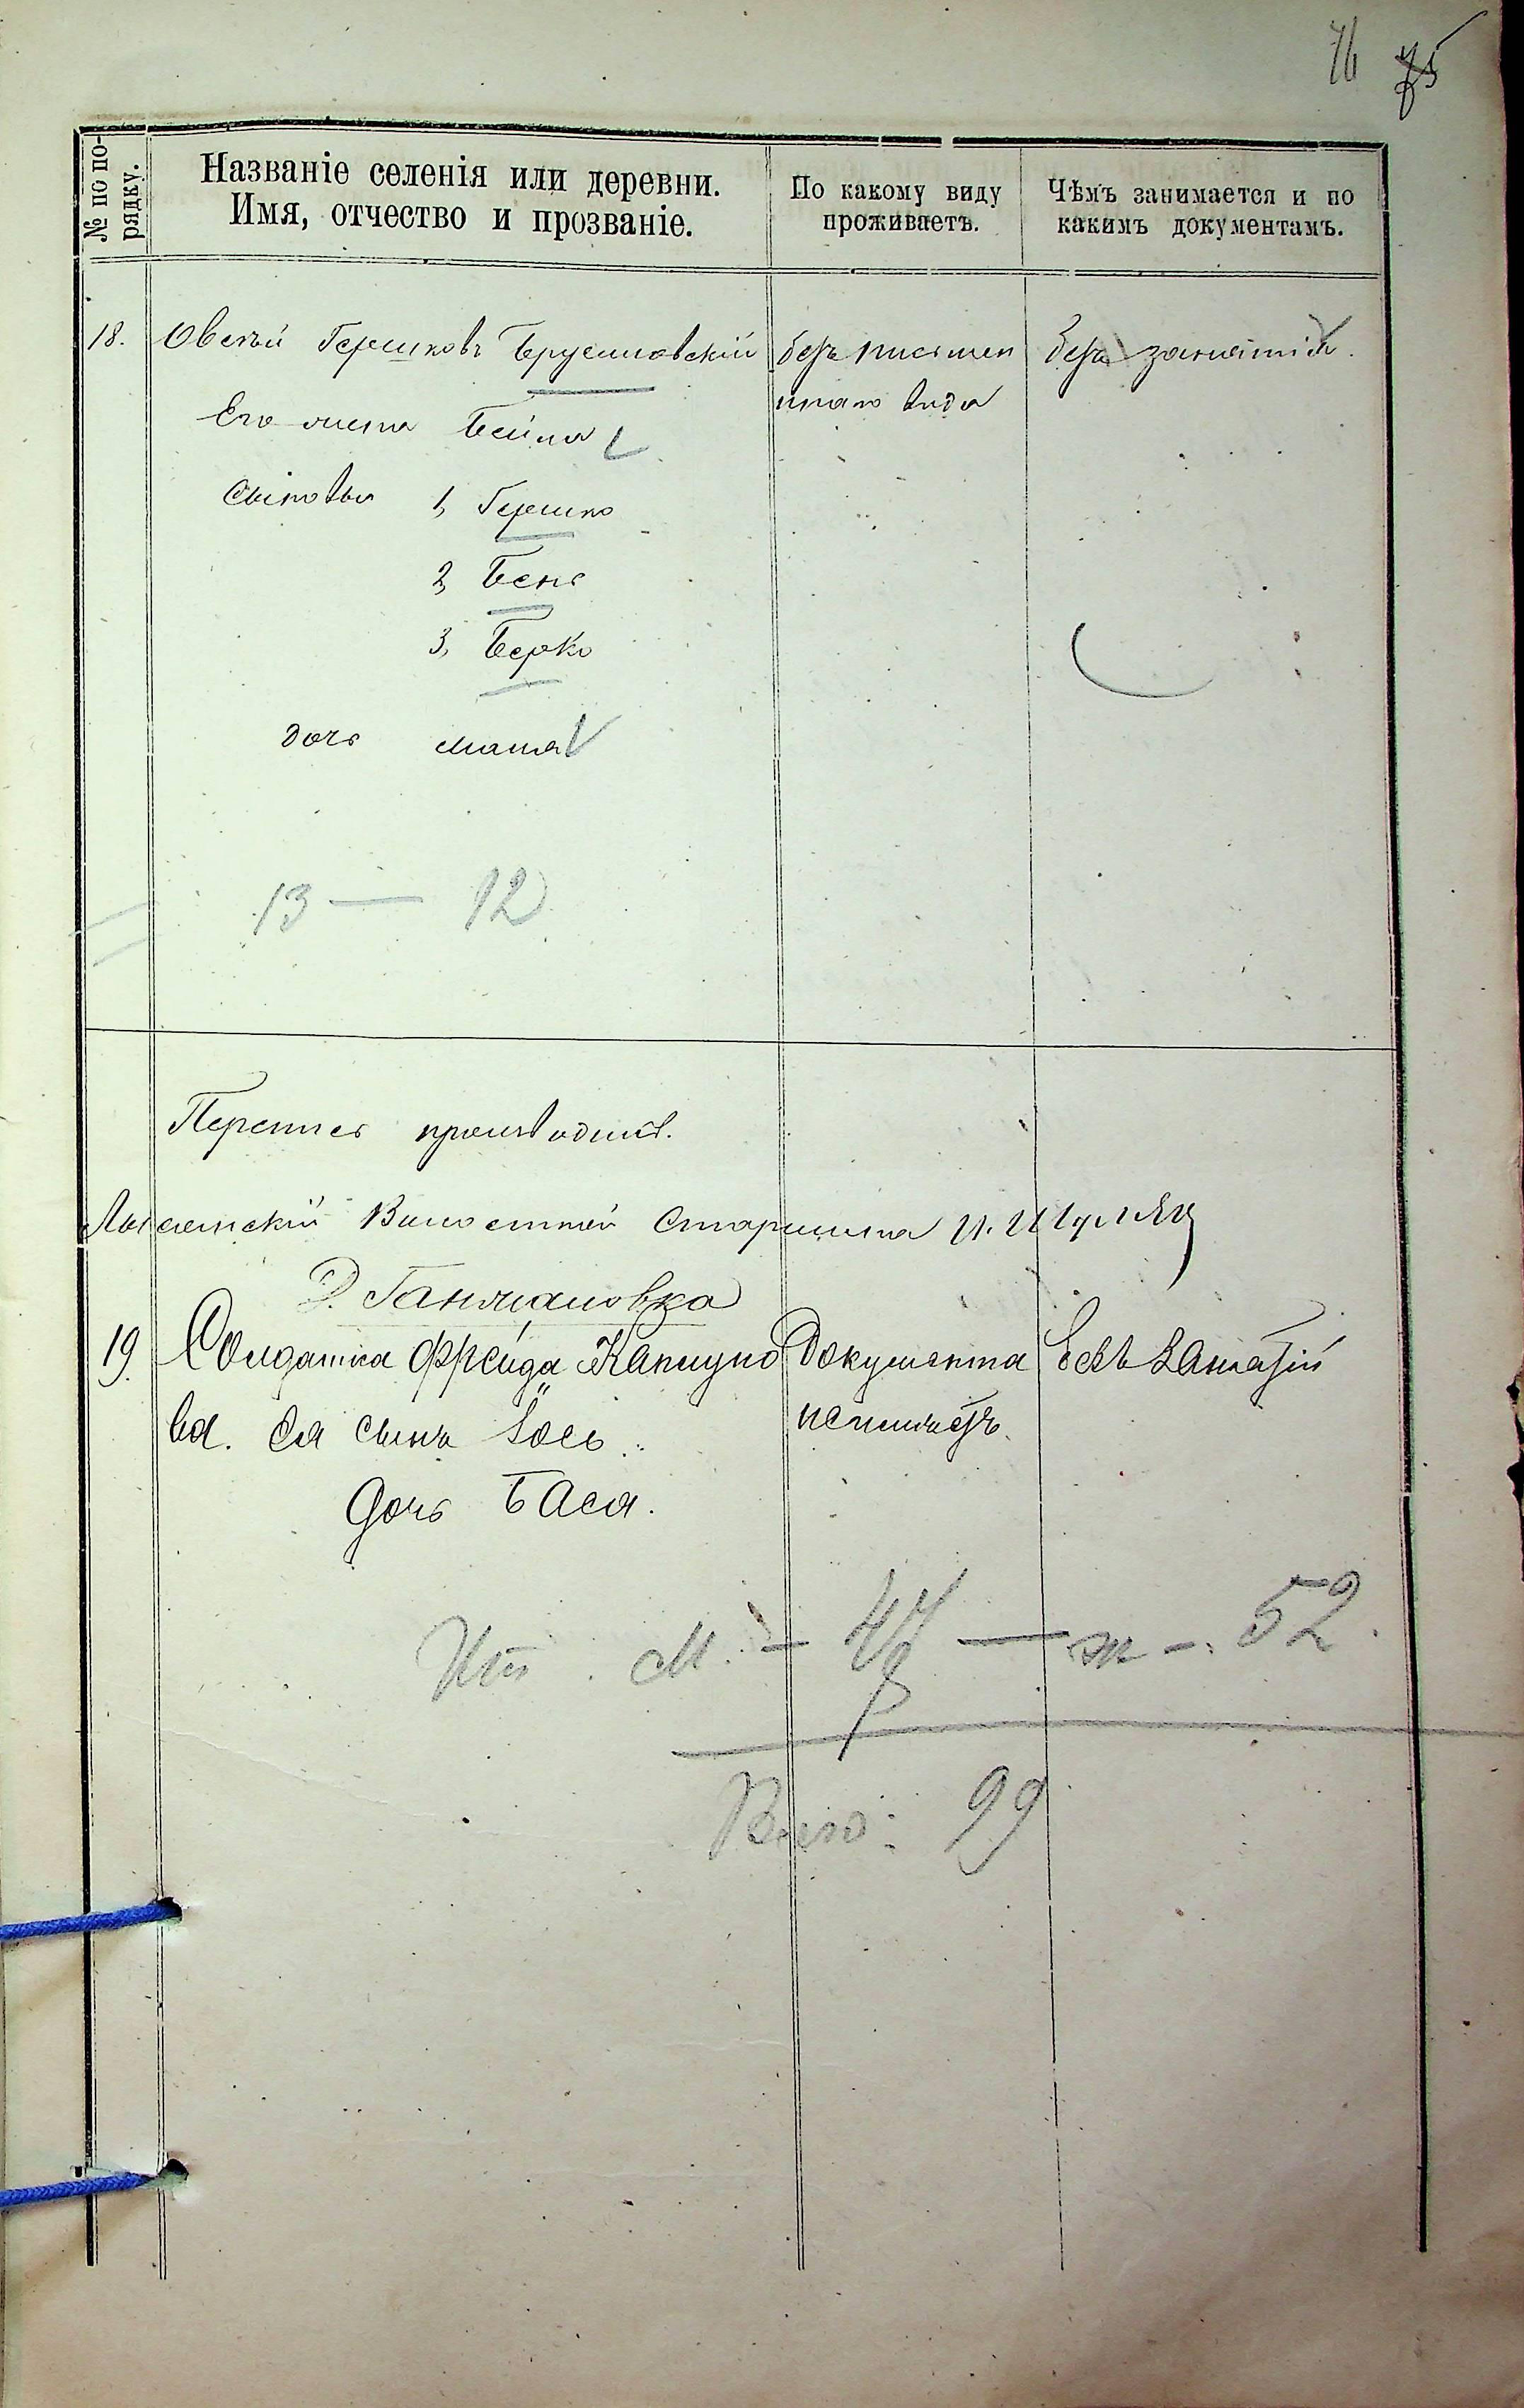 76 75
№ по по-
рядку.
Названіе селенія или деревни.
Имя, отчество и прозваніе.
По какому виду
проживаетъ.
Чѣмъ занимается и по
какимъ документамъ.
18. Овсѣй Гершковъ Брусиловскій безъ письмен безъ занятій.
Его жена Бейла ннаго вида
Сыновья 1, Гершко
2, Бень
3, Берко
дочь Маша
13 — 12
Перепись производилъ.
Волостной Старшина И.
Д. Ганжаловка
19. Солдатка Фрейда Каплуно Документа Безъ Занятій
ва. Ея сынъ Іось неимѣетъ.
Дочь Бася.
Ит. М. – 47 — ж –. 52.
Всего: 99